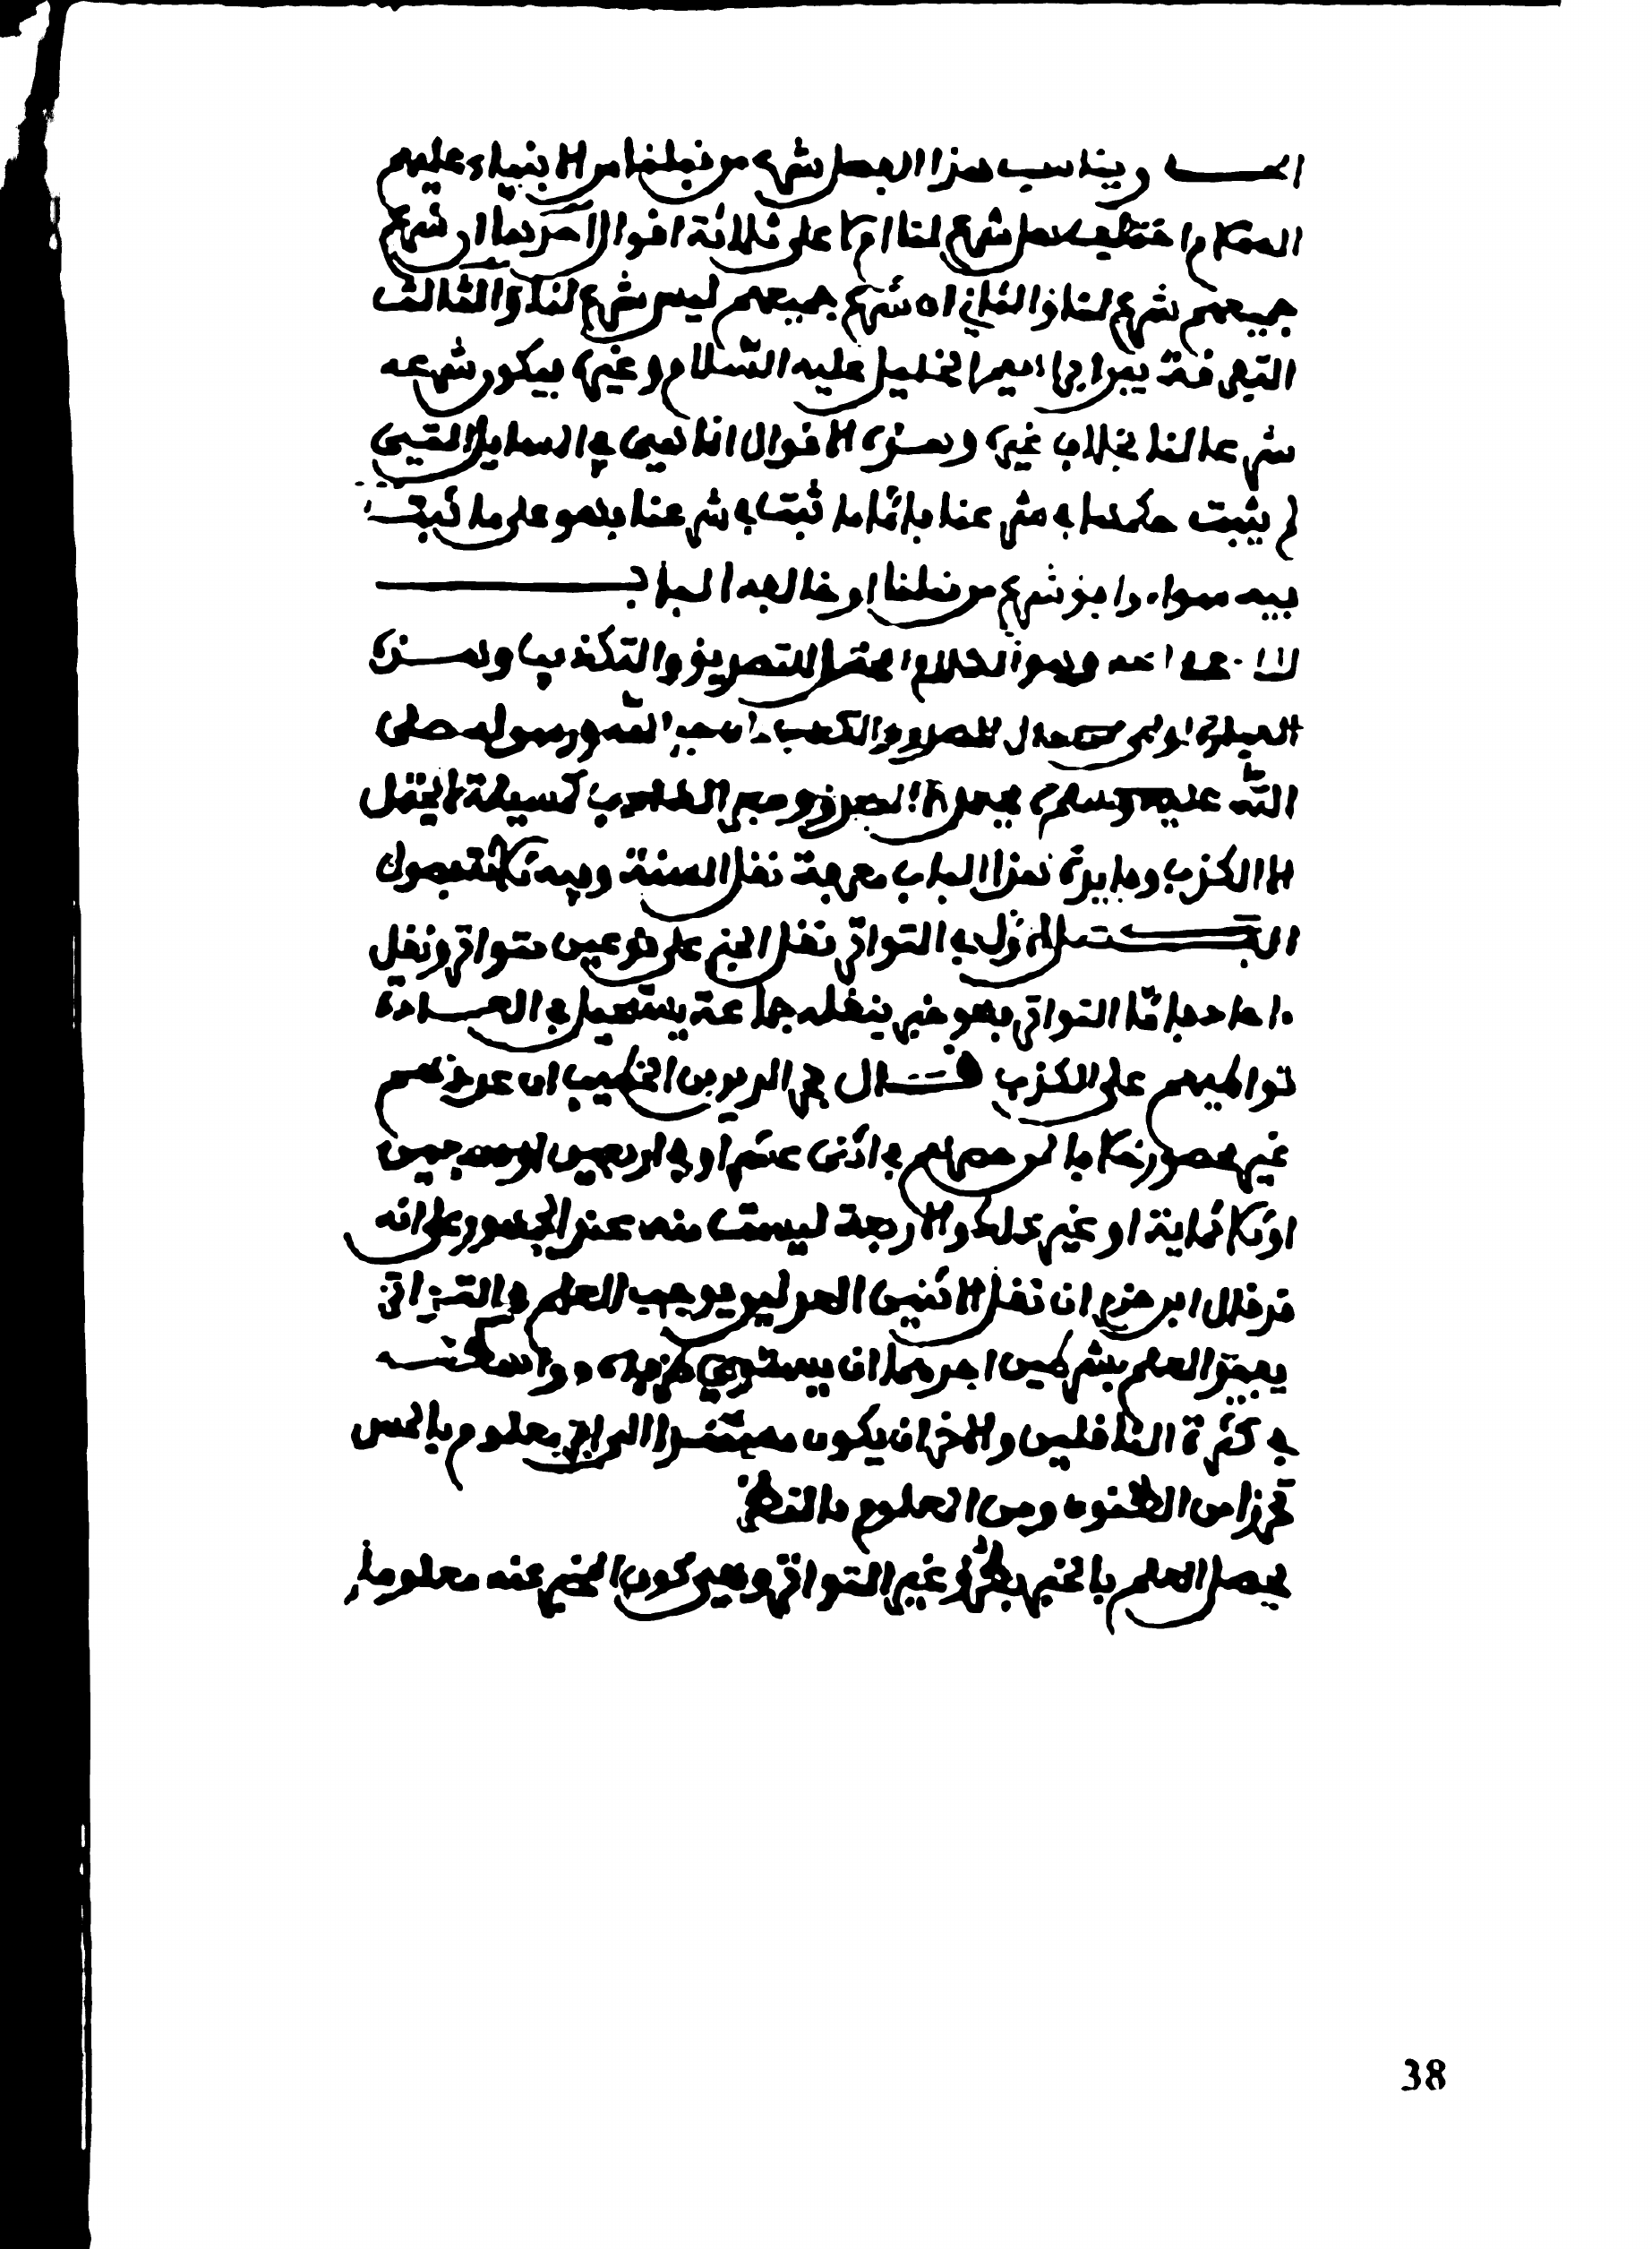 ويناسب هذا الفصل شرع من قبلنا من الانبياء عليهم
السلام واختلف هل شرع لنا ام لا على ثلاثة اقوال احدها ان شرع
جميعهم شرع لنا والثاني ان شرع جميعهم ليس شرع لنا والثالث
التفرقة بين ابراهيم الخليل عليه السلام وغيره فيكون شرعه
شرعا لنا بخلاف غيره وهذه الاقوال انما هي في المسايل التي
لم يثبت حكمها في شرعنا فاما ما ثبت في شرعنا فهو على ما ثبت
فيه سواء وافق شرع من قبلنا او خالفه الباب
وهو الكلام المحتمل للتصديق والتكذيب وهذه
للصدق والكذب لان خبر الله ورسوله صلى
الله عليه وسلم لا يحتمل الا الصدق وخبر الكاذب كمسيلمة لا يحتمل
الا الكذب وفايدة هذا الباب معرفة نقل السنة وفيه ثلاثة فصول
الفصل الاول في التواتر نقل الخبر على نوعين متواتر ونقل
احاد فاما التواتر فهو خبر ينقله جماعة يستحيل في العادة
تواطيهم على الكذب قال فخر الدين بن الخطيب ان عددهم
غير محصور خلافا لمن حصرهم في اثنى عشر او في اربعين او سبعين
او ثلاثماية او غير ذلك والاربعة ليست منه عند الجمهور على انه
قد قال ابن حزم ان نقل الاثنين العدلين يوجب العلم والتواتر
يفيد العلم بشرطين احدهما ان يستوي طرفاه وواسطته
في كثرة الناقلين والاخر ان يكون مستندا الى امر معلوم بالحس
تحرزا من الظنون ومن المعلوم بالنظر
يحصل العلم بالخبر بطرق غير التواتر وهي كون المخبر عنه معلوما
38